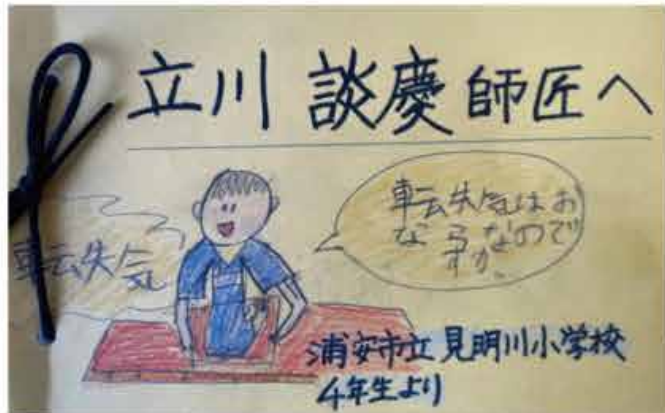 立川 談慶 師匠へ
転失気
転失気はお
ならなので
すか。
浦安市立 見明川小学校
4年生より